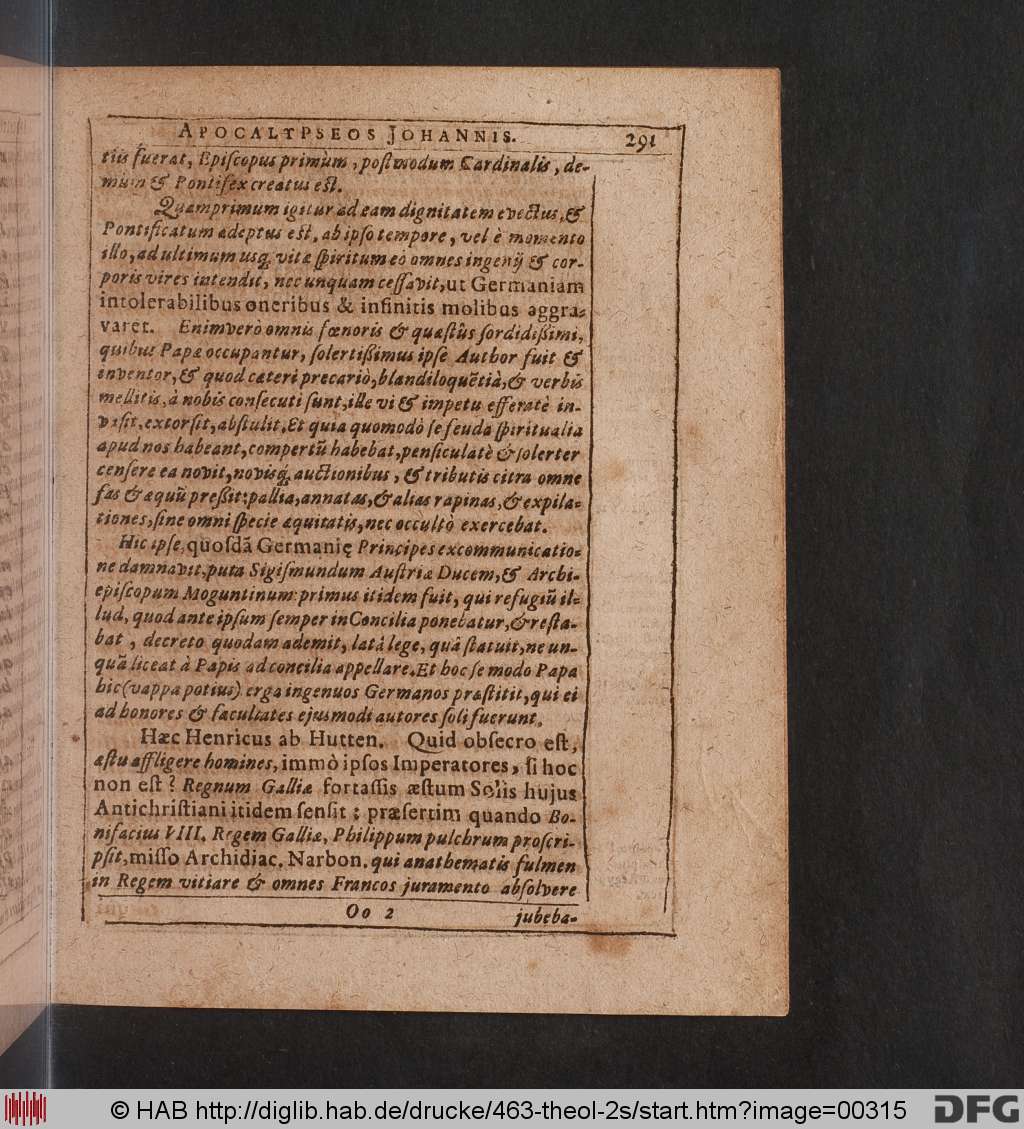 APOCALYPSEOS JOHANNIS. 291
tiis fuerat, Episcopus primùm, postmodum Cardinalis, de-
mum & Pontifex creatus est.
Quamprimum igitur ad eam dignitatem evectus, &
Pontificatum adeptus est, ab ipso tempore, vel è momento
illo, ad ultimum usq; vitæ spiritum eò omnes ingenij & cor-
poris vires intendit, nec unquam cessavit, ut Germaniam
intolerabilibus oneribus & infinitis molibus aggra-
varet. Enimverò omnis fœnoris & quæstûs sordidißimi,
quibus Papæ occupantur, solertißimus ipse Author fuit &
inventor, & quod cæteri precariò, blandiloquẽtiâ, & verbis
mellitis, à nobis consecuti sunt, ille vi & impetu efferatè in-
vasit, extorsit, abstulit. Et quia quomodò se feuda spiritualia
apud nos habeant, compertũ habebat, pensiculatè & solerter
censere ea novit, novisq; auctionibus, & tributis citra omne
fas & æquũ preßit: pallia, annatas, & alias rapinas, & expila-
tiones, sine omni specie æquitatis, nec occultò exercebat.
Hic ipse, quosdã Germanię Principes excommunicatio-
ne damnavit, puta Sigismundum Austriæ Ducem, & Archi-
episcopum Moguntinum: primus itidem fuit, qui refugiũ il-
lud, quod ante ipsum semper in Concilia ponebatur, & resta-
bat, decreto quodam ademit, latâ lege, quâ statuit, ne un-
quã liceat à Papis ad concilia appellare. Et hoc se modo Papa
hic (vappa potius) erga ingenuos Germanos præstitit, qui ei
ad honores & facultates ejusmodi autores soli fuerunt.
Hæc Henricus ab Hutten. Quid obsecro est,
æstu affligere homines, immò ipsos Imperatores, si hoc
non est? Regnum Galliæ fortassis æstum Solis hujus
Antichristiani itidem sensit: præsertim quando Bo-
nifacius VIII. Regem Galliæ, Philippum pulchrum proscri-
psit, misso Archidiac. Narbon. qui anathematis fulmen
in Regem vitiare & omnes Francos juramento absolvere
Oo 2 jubeba-
© HAB http://diglib.hab.de/drucke/463-theol-2s/start.htm?image=00315 DFG